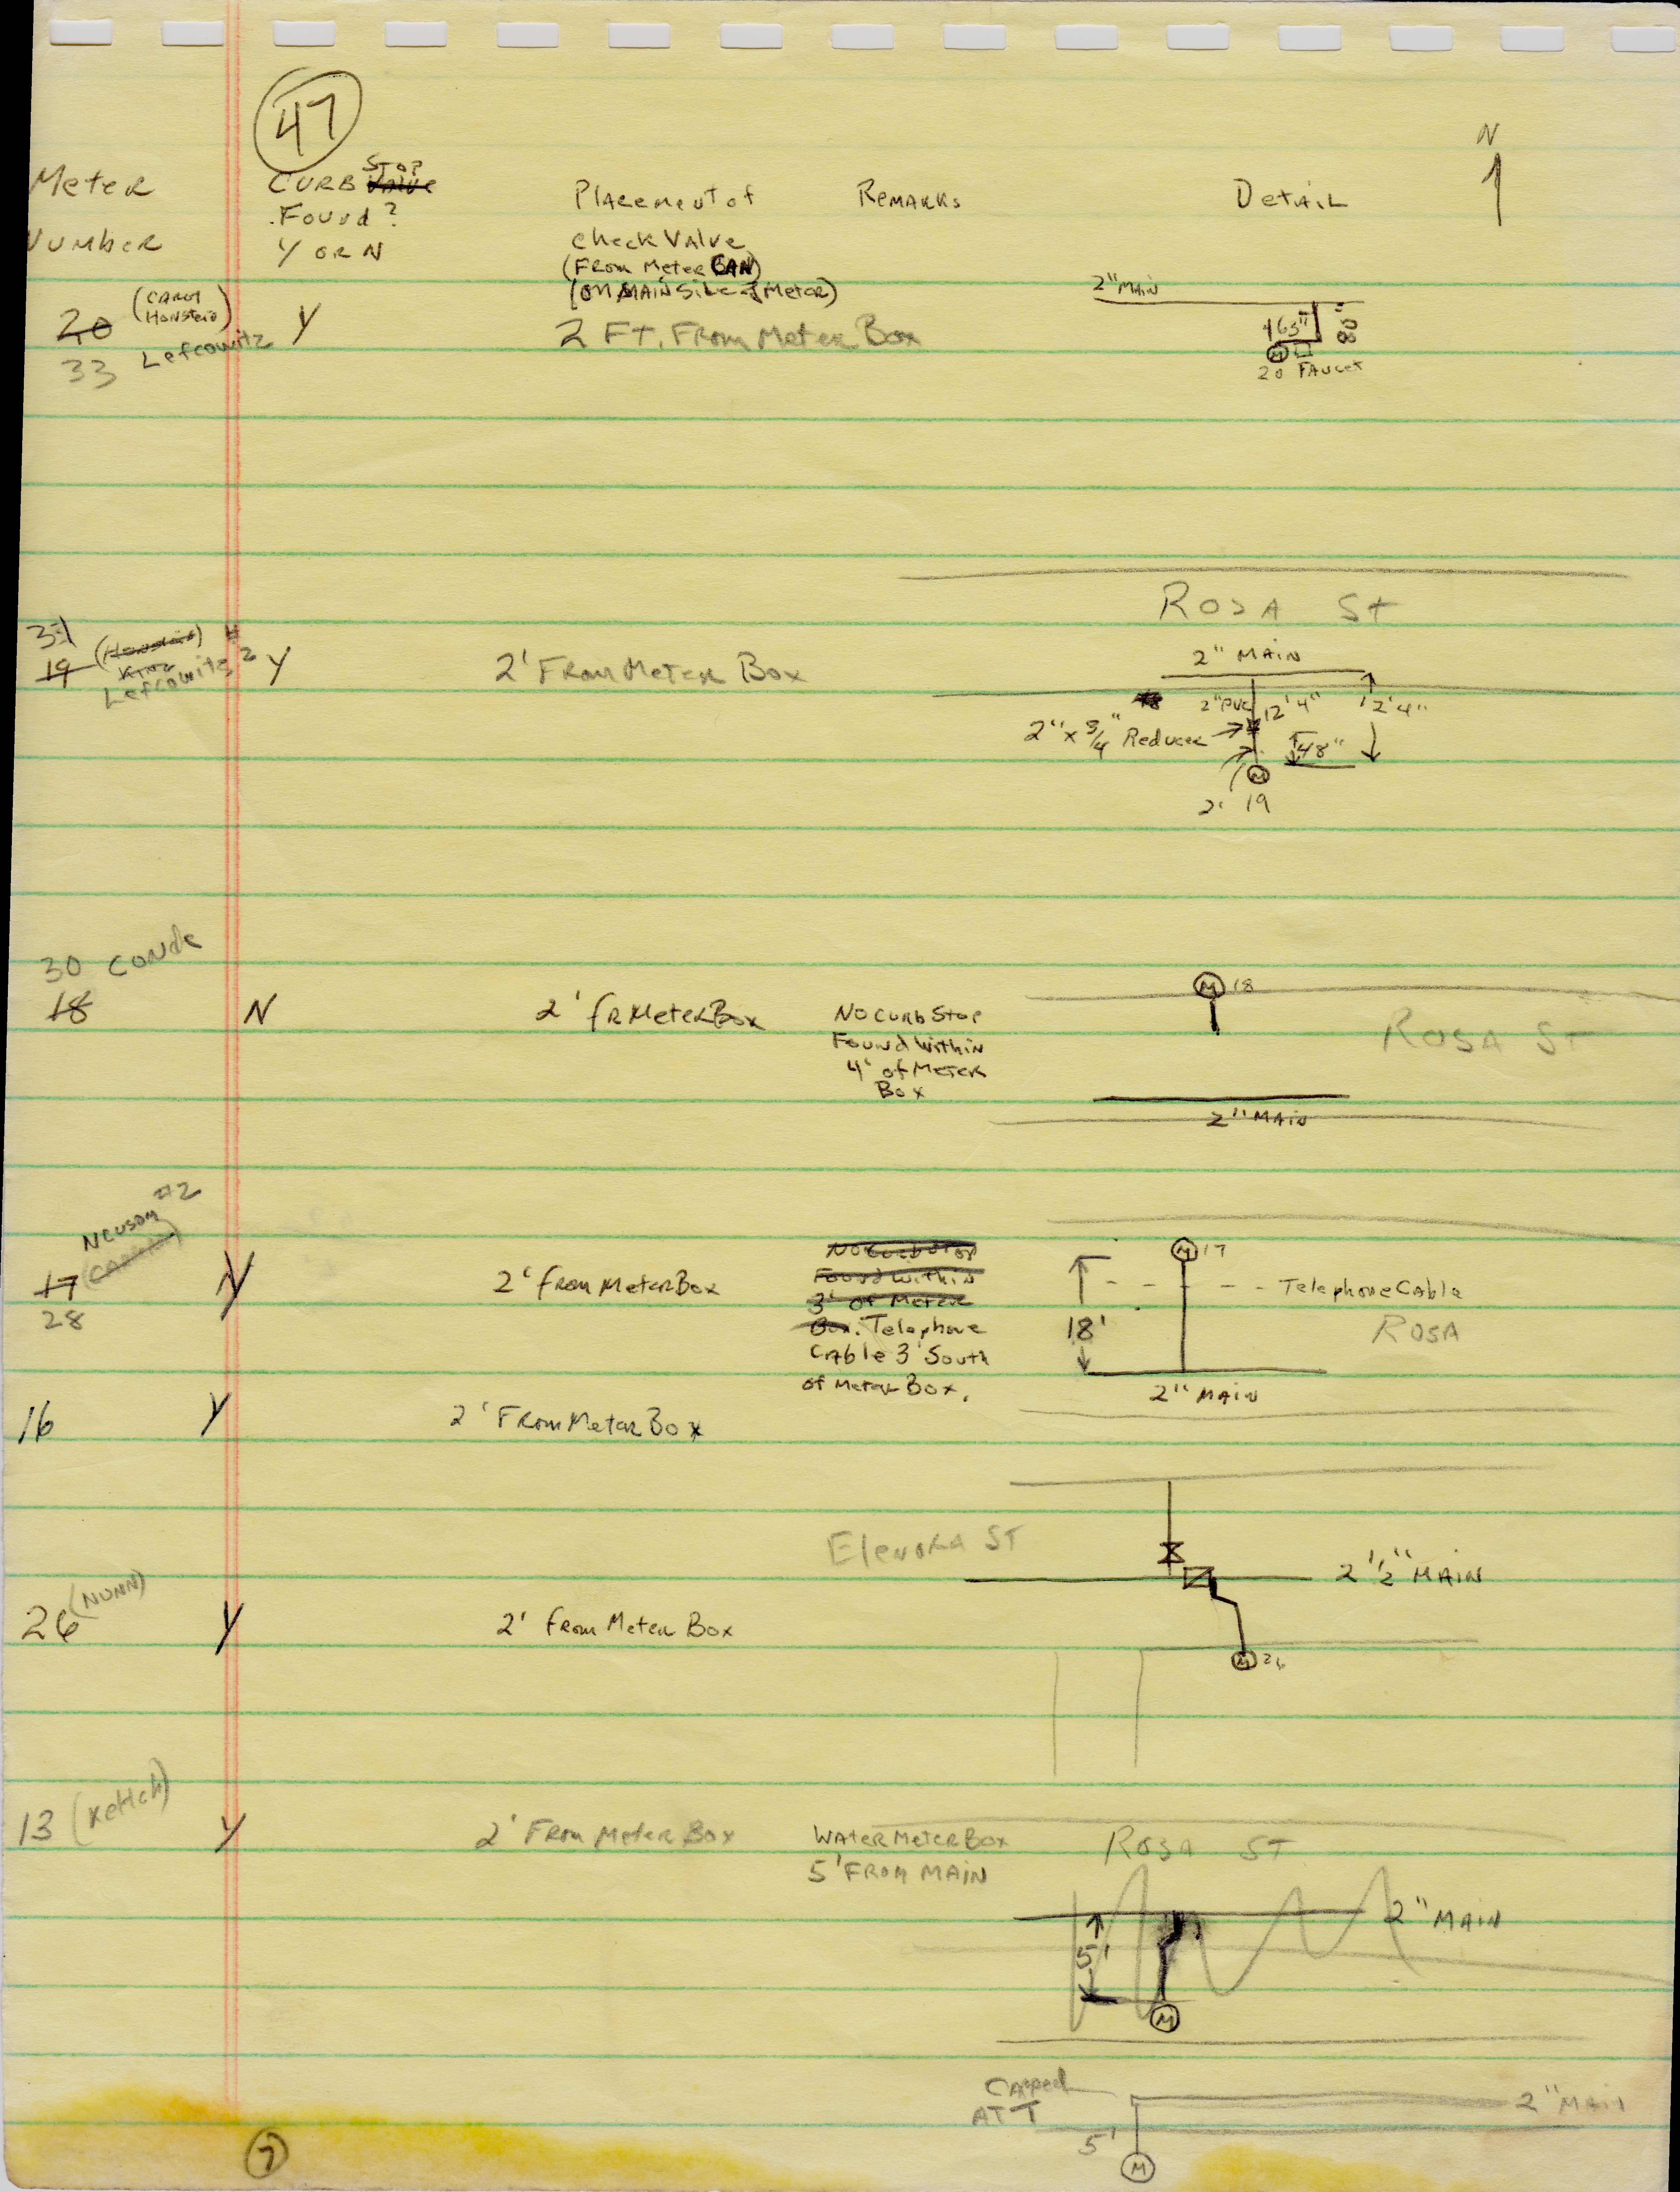 47
N
Meter
Number
CURB Valve STOP
Found?
Y OR N
Placement of
Check Valve
(From Meter CAN)
(ON MAIN Side of Meter)
Remarks
Detail
20 (CAROL
Lefcowitz
33
Y
2 FT. From Meter Box
2" MAIN
20 FAUCET
M
Rosa St
31
19
Lefcowitz 2
Y
2' From Meter Box
2" MAIN
2" PVC 12'4" 12'4"
2" x 3/4" Reducer
48"
M
2' 19
30 Conde
18
N
2' fr Meter Box
No Curb Stop
Found Within
4' of Meter
Box
M 18
Rosa St
2" MAIN
Newsom #2
17
28
Y
2' from Meter Box
No Curb Stop
Found Within
3' of Meter
Box. Telephone
Cable 3' South
of Meter Box.
M 17
Telephone Cable
18'
Rosa
2" MAIN
16
Y
2' From Meter Box
Elenora ST
2 1/2" MAIN
26 (NUNN)
Y
2' from Meter Box
M 26
13 (Kettch)
Y
2' From Meter Box
Water Meter Box
5' From MAIN
Rosa ST
2" MAIN
5'
M
Capped
AT T
2" MAIN
5'
M
7